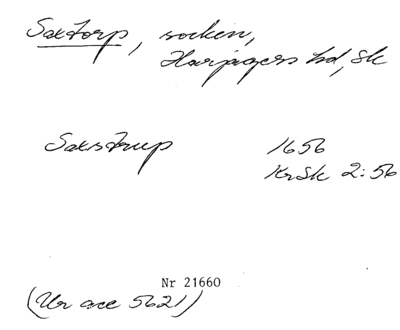 Saxtorp, socken,
Harjagers hd, Sk
Saxstrup 1656
KrSk 2:56
Nr 21660
(Ur acc 5621)